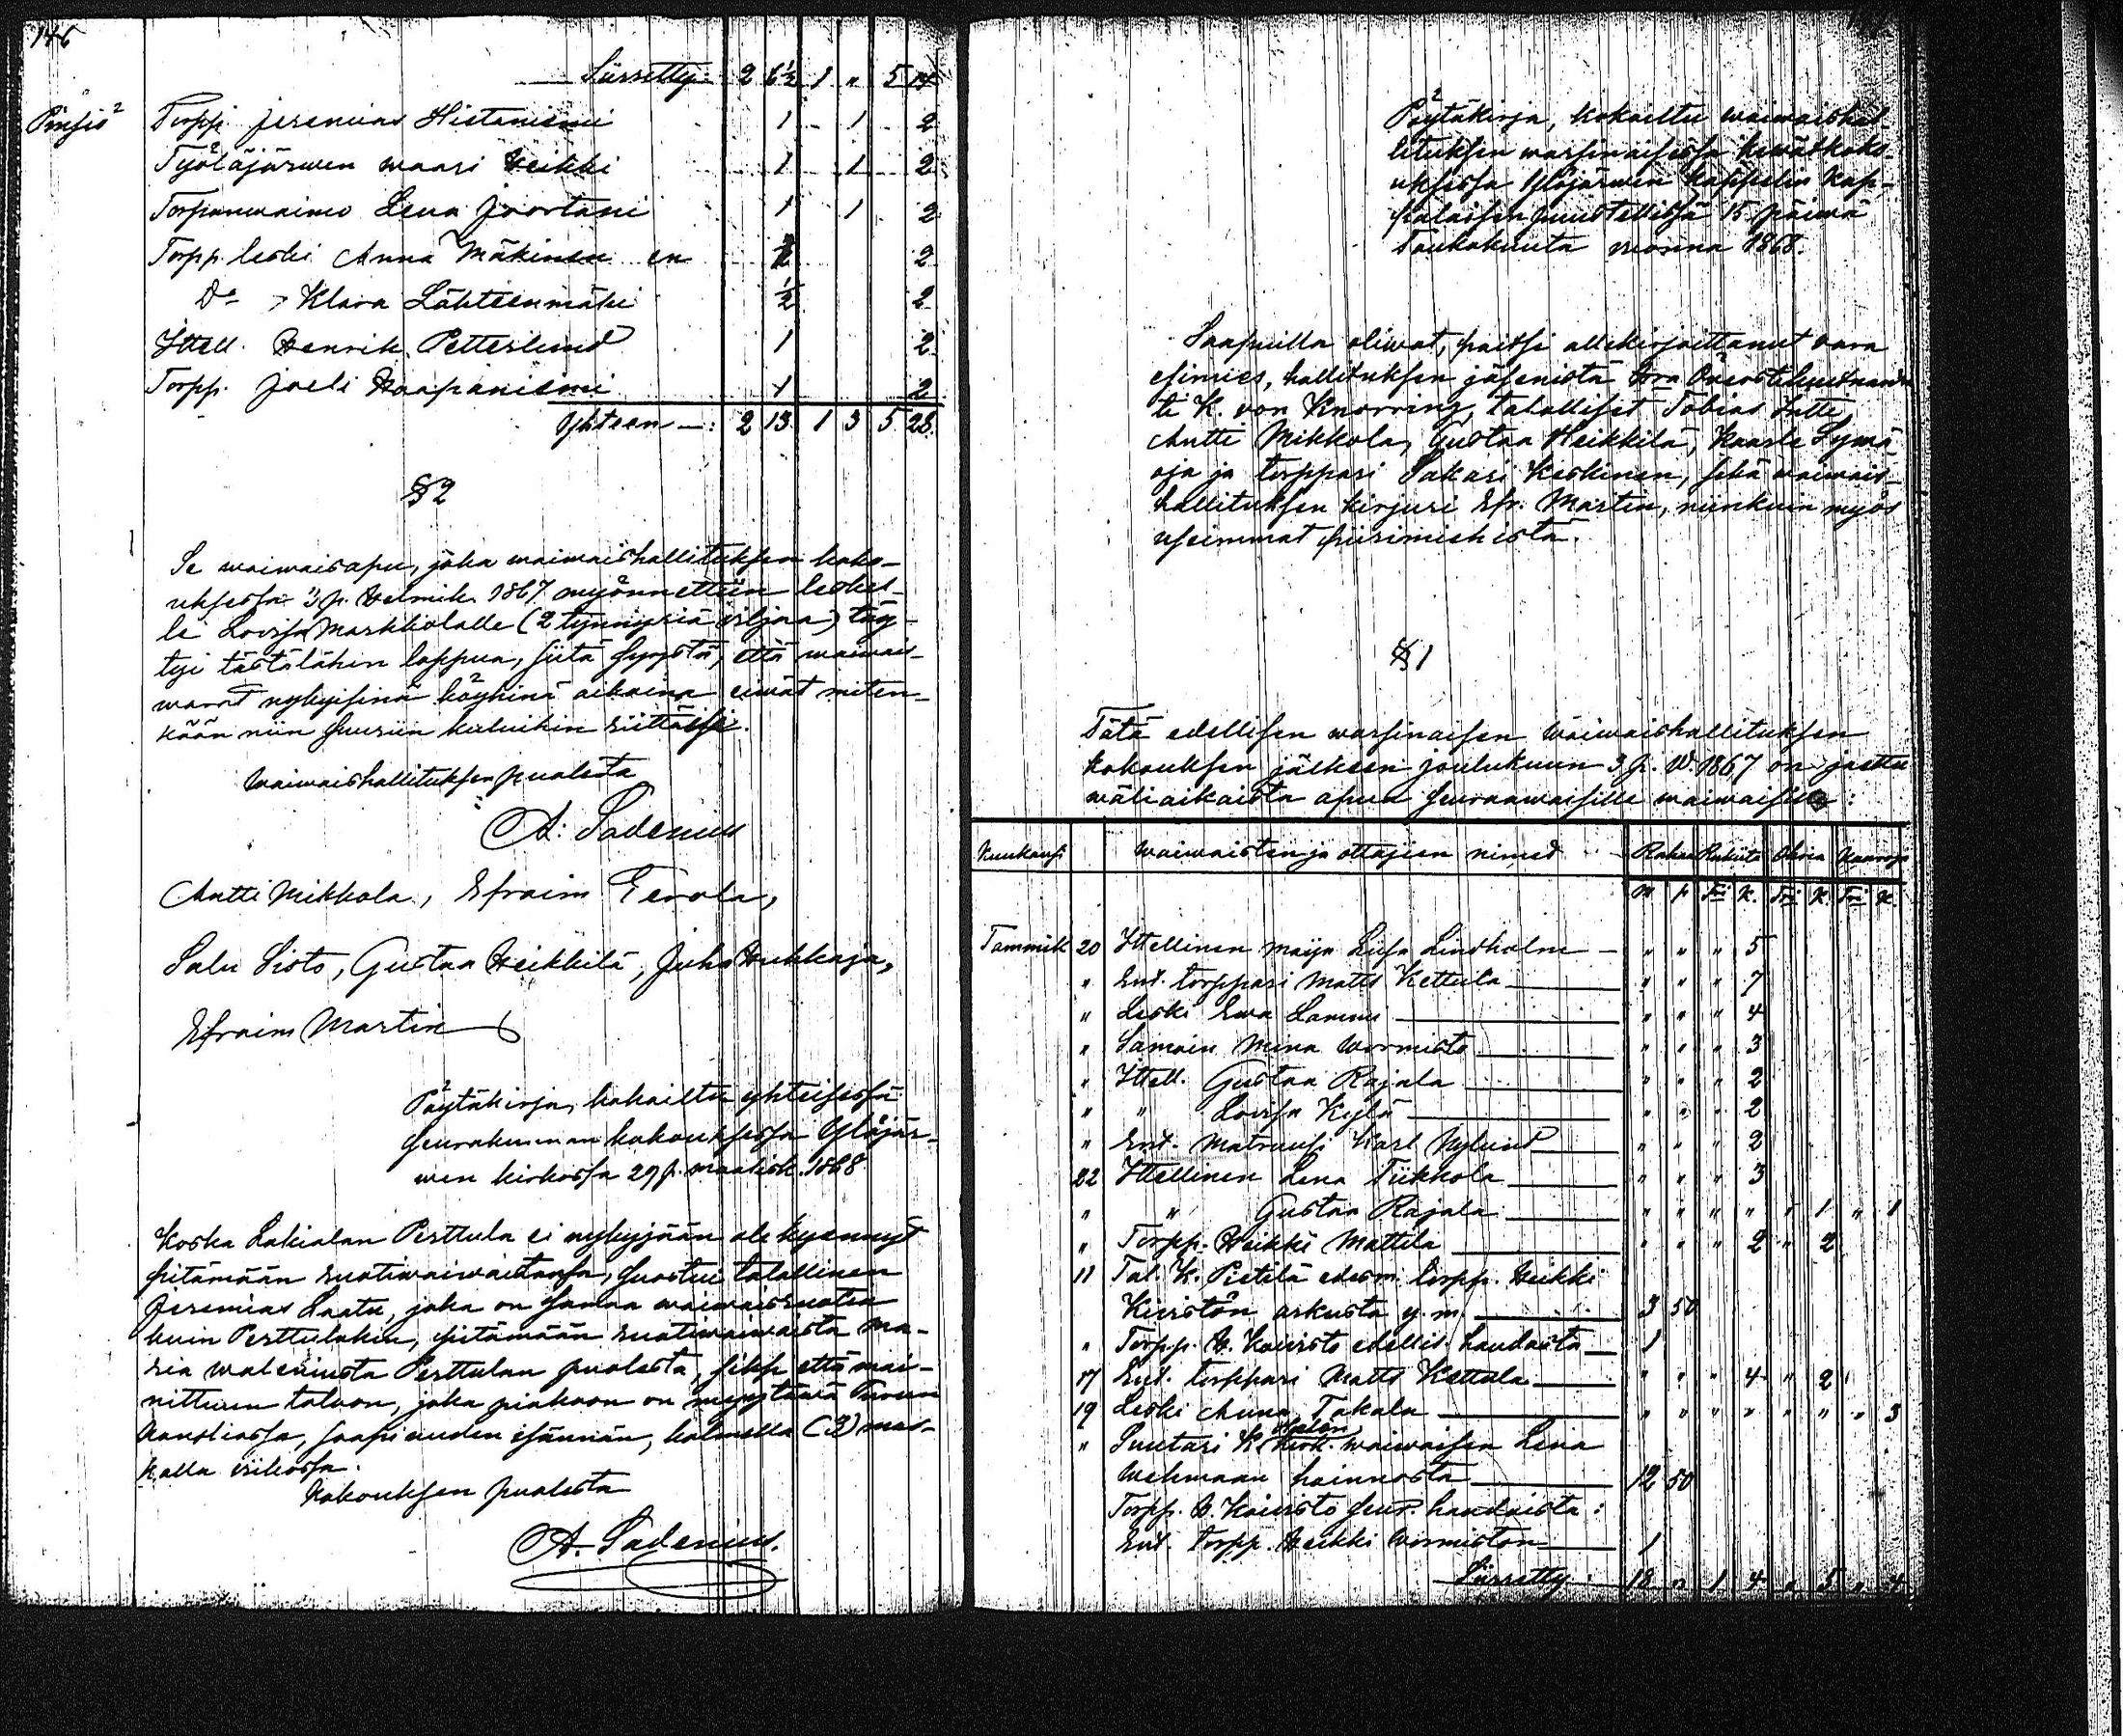 146
Siirretty 2 6½ 1 " 5 14
Pinsiö Torpp. Jeremias Hietaniemi 1 1 2
Työläjärwen waari Heikki 1 1 2
Torpanwaimo Lena Joortani 1 1 2
Torpp. leski Anna Mäkinen en ½ 2
Do " Klara Lähteenmäki ½ 2
Ittell. Henrik Petterlund 1 2
Torpp. Joeli Haapaniemi 1 2
Yhteen —: 2 13 1 3 5 28
§ 2
Se waiwaisapu, joka waiwaishallituksen koko-
uksessa 3 p. Helmik. 1867 myönnettiin leskel-
le Lovisa Markkolalle (2 tynnyriä viljaa) täy-
tyi tästälähin loppua, siitä syystä, että waiwais-
warat nykyisinä köyhinä aikoina eiwät miten-
kään niin suuriin kuluihin riittäisi.
Waiwaishallituksen puolesta
A. Sadenius
Antti Mikkola, Efraim Eerola,
Salu Sisto, Gustaa Heikkilä, Juho Hukkaja,
Efraim Martin
Pöytäkirja, kokoiltu yhteisessä
seurakunnan kokouksessa Ylöjär-
wen kirkossa 29 p. maalisk. 1868
Koska Lakialan Perttula ei nykyjään ole kyennyt
pitämään ruotiwaiwaistansa, suostui talollinen
Jeremias Laatu, joka on samaa waiwaisruotia
kuin Perttulakin, pitämään ruotiwaiwaista Ma-
ria Waleniusta Perttulan puolesta, siksi että mai-
nittuun taloon, joka piakoon on myytäwä Turun
Kanslissa, saapi uuden isännän, kolmella (3) mar-
kalla wiikossa.
Kokouksen puolesta
A. Sadenius.
Pöytäkirja, kokoiltu waiwaishal-
lituksen warsinaisessa kewätkoko-
uksessa Ylöjärwen kappelin Kap-
palaisen puustellissa 15 päiwä
Toukokuuta wuonna 1868.
Saapuilla oliwat, paitsi allekirjoittanut vara
esimies, hallituksen jäsenistä herra Öfwersteluutnant-
ti K. von Knorring, talolliset Tobias Intti,
Antti Mikkola, Gustaa Heikkilä, Kaarle Symä
oja ja torppari Sakari Keskinen, sekä waiwais-
hallituksen kirjuri Efr. Martin, niinkuin myös
useimmat piirimiehistä.
§ 1
Tätä edellisen warsinaisen waiwaishallituksen
kokouksen jälkeen joulukuun 3 p. W. 1867 on jaettu
wäliaikaista apua seuraawaisille waiwaisille:
Kuukausi Waiwaisten ja ottajien nimet Rahaa Rukiita Ohria Kauroja
M p Tri K. Tri K. Tri K.
Tammik 20 Ittellinen Maija Liisa Lindholm — " " " 5
" Ent. torppari Matts Kettula " " " 7
" Leski Ewa Lammi " " " 4
" Samoin Mina Wormisto " " " 3
" Ittell. Gustaa Rajala " " " 2
" " Lovisa Kylä " " " 2
" Ent. Matruusi Karl Nylund " " " 2
22 Ittellinen Lena Tiikkola " " " 3
" " Gustaa Rajala " " " " " 1 " 1
" Torpp. Heikki Mattila " " " 2 " 2
11 Tal. K. Pietilä edesm. torpp. Heikki
Kiwistön arkusta y. m. 3 50
" Torpp. H. Koiwisto edellis. haudasta 1
17 Ent. torppari Matts Kettula " " " 4 " 2
19 Leski Anna Takala " " " " " " " 3
" Suutari K. Holén kirk. waiwaisen Lena
Wehmaan hoinnosta 12 50
Torpp. H. Koiwisto seur. haudoista:
Ent. Torpp. Heikki Wormiston 1
Siirretty: 18 " 1 4 " 5 " 4